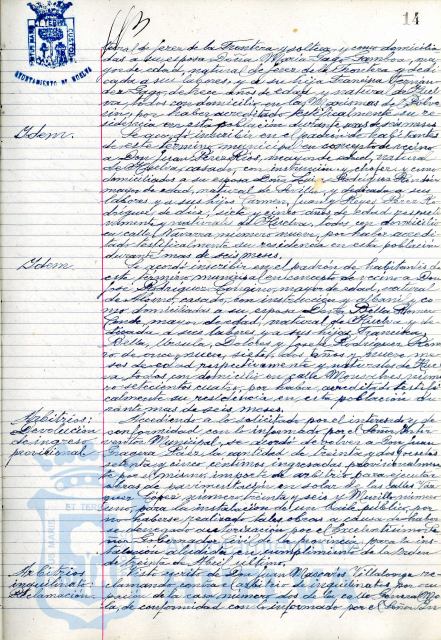 14
AYUNTAMIENTO DE HUELVA
de Jerez de la Frontera y soltera, y como domicilia-
das a su esposa Doña María Gago Gamboa, ma-
yor de edad, natural de Jerez de la Frontera y dedi-
cada a sus labores, y a su hija Francisca
Gago, de trece años de edad y natural de Huel-
va, todos con domicilio en las Marismas del Polvo-
rín, por haber acreditado testificalmente su re-
sidencia en esta población durante más de seis meses.
Idem.
Se acordó inscribir en el padrón de habitantes
de este término municipal en concepto de vecino
a Don Juan Pérez Ríos, mayor de edad, natural
de Huelva, casado, con instrucción y chofer y como
domiciliados a su esposa Doña Luz Rodríguez
mayor de edad, natural de Sevilla y dedicada a sus
labores y a sus hijos Carmen, Juan y Reyes Pérez Ro-
dríguez de diez, siete y cinco años de edad respectiva-
mente y naturales de Huelva, todos con domicilio
en calle Navarra número nueve, por haber acredi-
tado testificalmente su residencia en esta población
durante más de seis meses.
Idem.
Se acordó inscribir en el padrón de habitantes de
este término municipal en concepto de vecino a Don
José Rodríguez mayor de edad, natural
de casado, con instrucción y albañil y co-
mo domiciliadas a su esposa Doña Bella Romero
Conde, mayor de edad, natural de Huelva y de-
dicada a sus labores y a sus hijos Francisco,
Bella, Úrsula, Dolores y Josefa Rodríguez Rome-
ro de once, nueve, siete, dos años y nueve me-
ses de edad respectivamente y naturales de Huel-
va, todos con domicilio en calle núme-
ro setecientos cuatro, por haber acreditado testifi-
calmente su residencia en esta población du-
rante más de seis meses.
Arbitrios:
Devolución
de ingreso
provisional.
Accediendo a lo solicitado por el interesado y de
conformidad con lo informado por el Señor Inter-
ventor Municipal, se acordó devolver a Don Juan
Fraguera Sáez la cantidad de treinta y dos pesetas
setenta y cinco céntimos ingresadas provisionalmen-
te por el mismo, importe de arbitrio para ejecutar
obras de en solar de las calles Váz-
quez López número treinta y seis y Murillo número
uno, para la instalación de un baile público, por
no haberse realizado tales obras a causa de haber-
se denegado autorización por el Excelentísimo Se-
ñor Gobernador Civil de la provincia para la ins-
talación aludida, en cumplimiento de la orden
de treinta de Abril último.
Arbitrios
inquilinato:
Reclamación.
Visto escrito de Don Juan Mascarós Villalonga re-
clamando contra el arbitrio de inquilinato por ocu-
pación de la casa número dos de la calle General Mo-
la, de conformidad con lo informado por el Señor In-